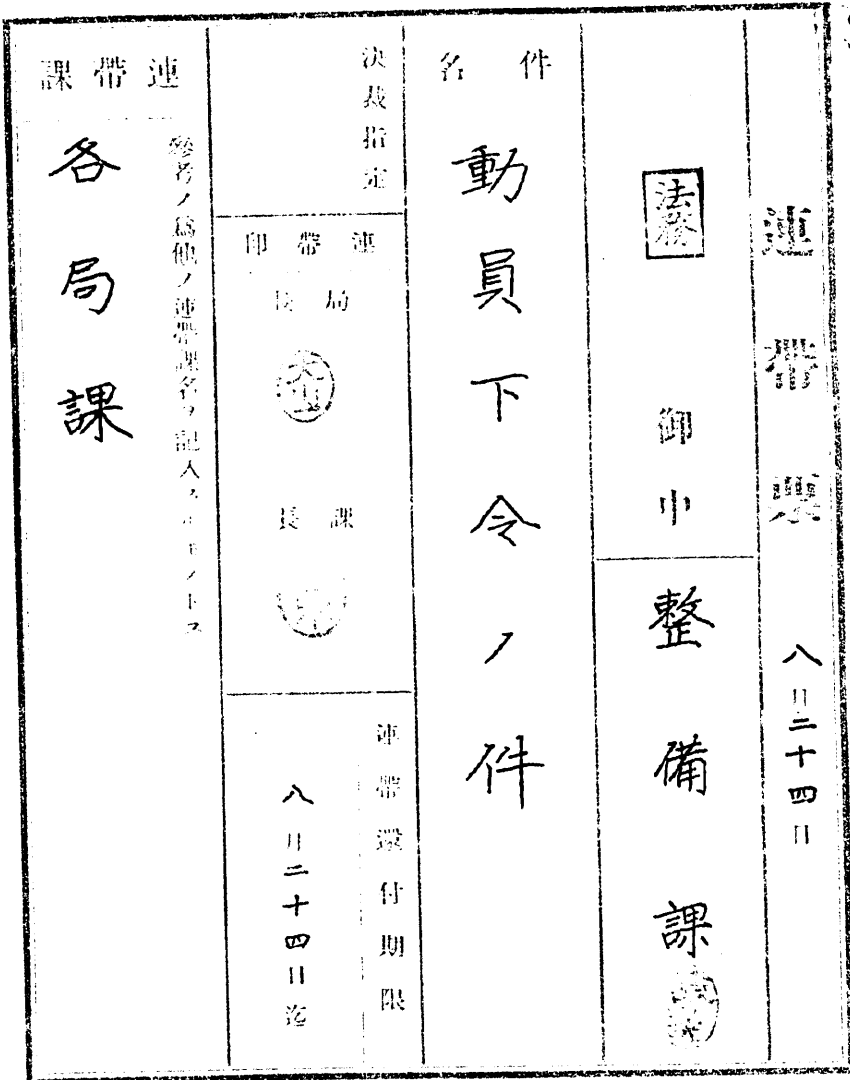 連帶票 八月二十四日
法務 御中
整備課
件名
動員下令ノ件
決裁指定
連帶印
局長
課長
連帶還付期限
八月二十四日迄
連帶課
參考ノ爲他ノ連帶課名ヲ記入スルモノトス
各局課